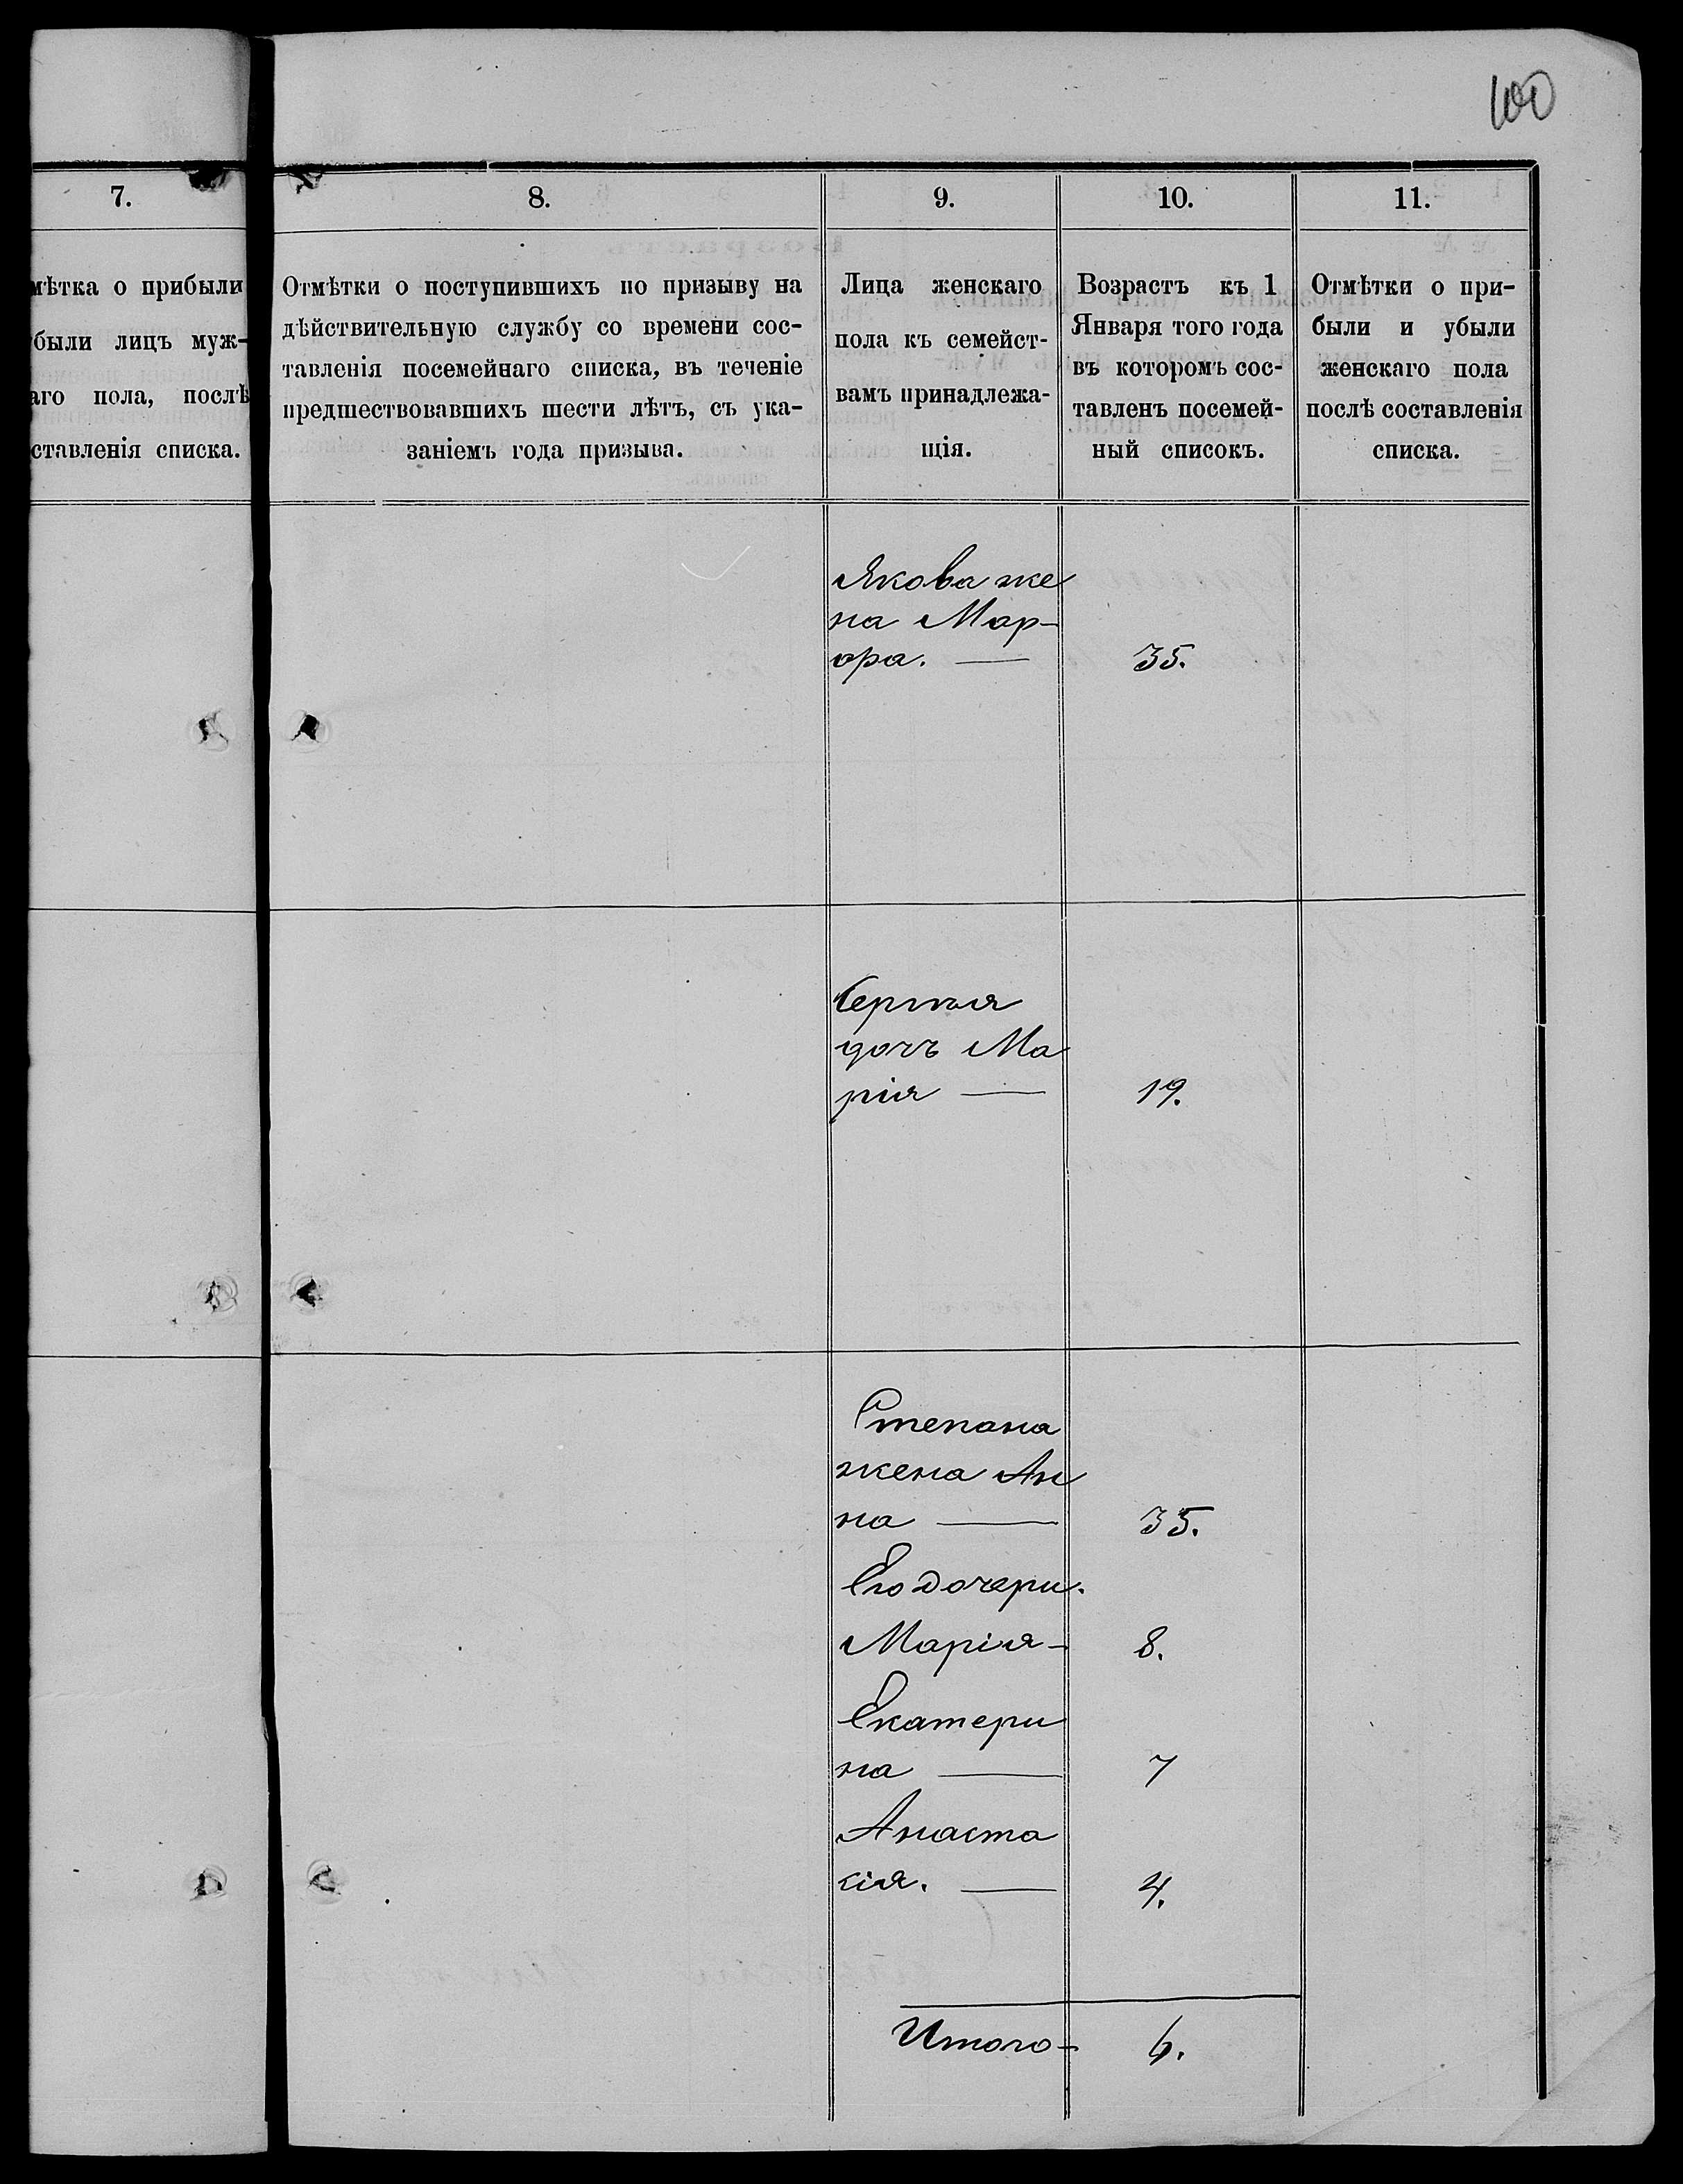 100
7.
8.
9.
10.
11.
мѣтка о прибыли
были лицъ муж-
аго пола, послѣ
ставленія списка.
Отмѣтки о поступившихъ по призыву на
дѣйствительную службу со времени сос-
тавленія посемейнаго списка, въ теченіе
предшествовавшихъ шести лѣтъ, съ ука-
заніемъ года призыва.
Лица женскаго
пола къ семейст-
вамъ принадлежа-
щія.
Возрастъ къ 1
Января того года
въ которомъ сос-
тавленъ посемей-
ный списокъ.
Отмѣтки о при-
были и убыли
женскаго пола
послѣ составленія
списка.
Якова же
на Мар-
ѳра. — 35.
Сергѣя
дочь Ма
рія — 19.
Степана
жена Ан
на — 35.
Его дочери.
Марія - 8.
Екатери
на — 7
Анаста
сія. — 4.
Итого - 6.